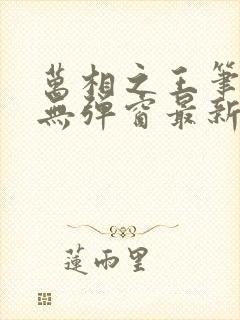 萬相之王筆
無彈窗最新
蓮雨里